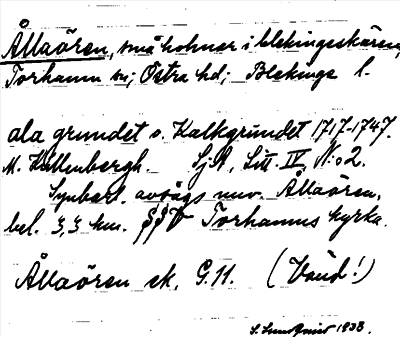 Ållaören, små holmar i blekingeskären,
Torhamn sn; Östra hd; Blekinge l.
ala grundet o. Kalkgrundet 1717-1747.
M. Källenbergh. SjA, Litt. IV, N:o 2.
Synbarl. avsågs nuv. Ållaören,
bel. 3,3 km. SSV Torhamns kyrka.
Ållaören ek. G.11. (Vänd!)
S. Lundqvist 1938.